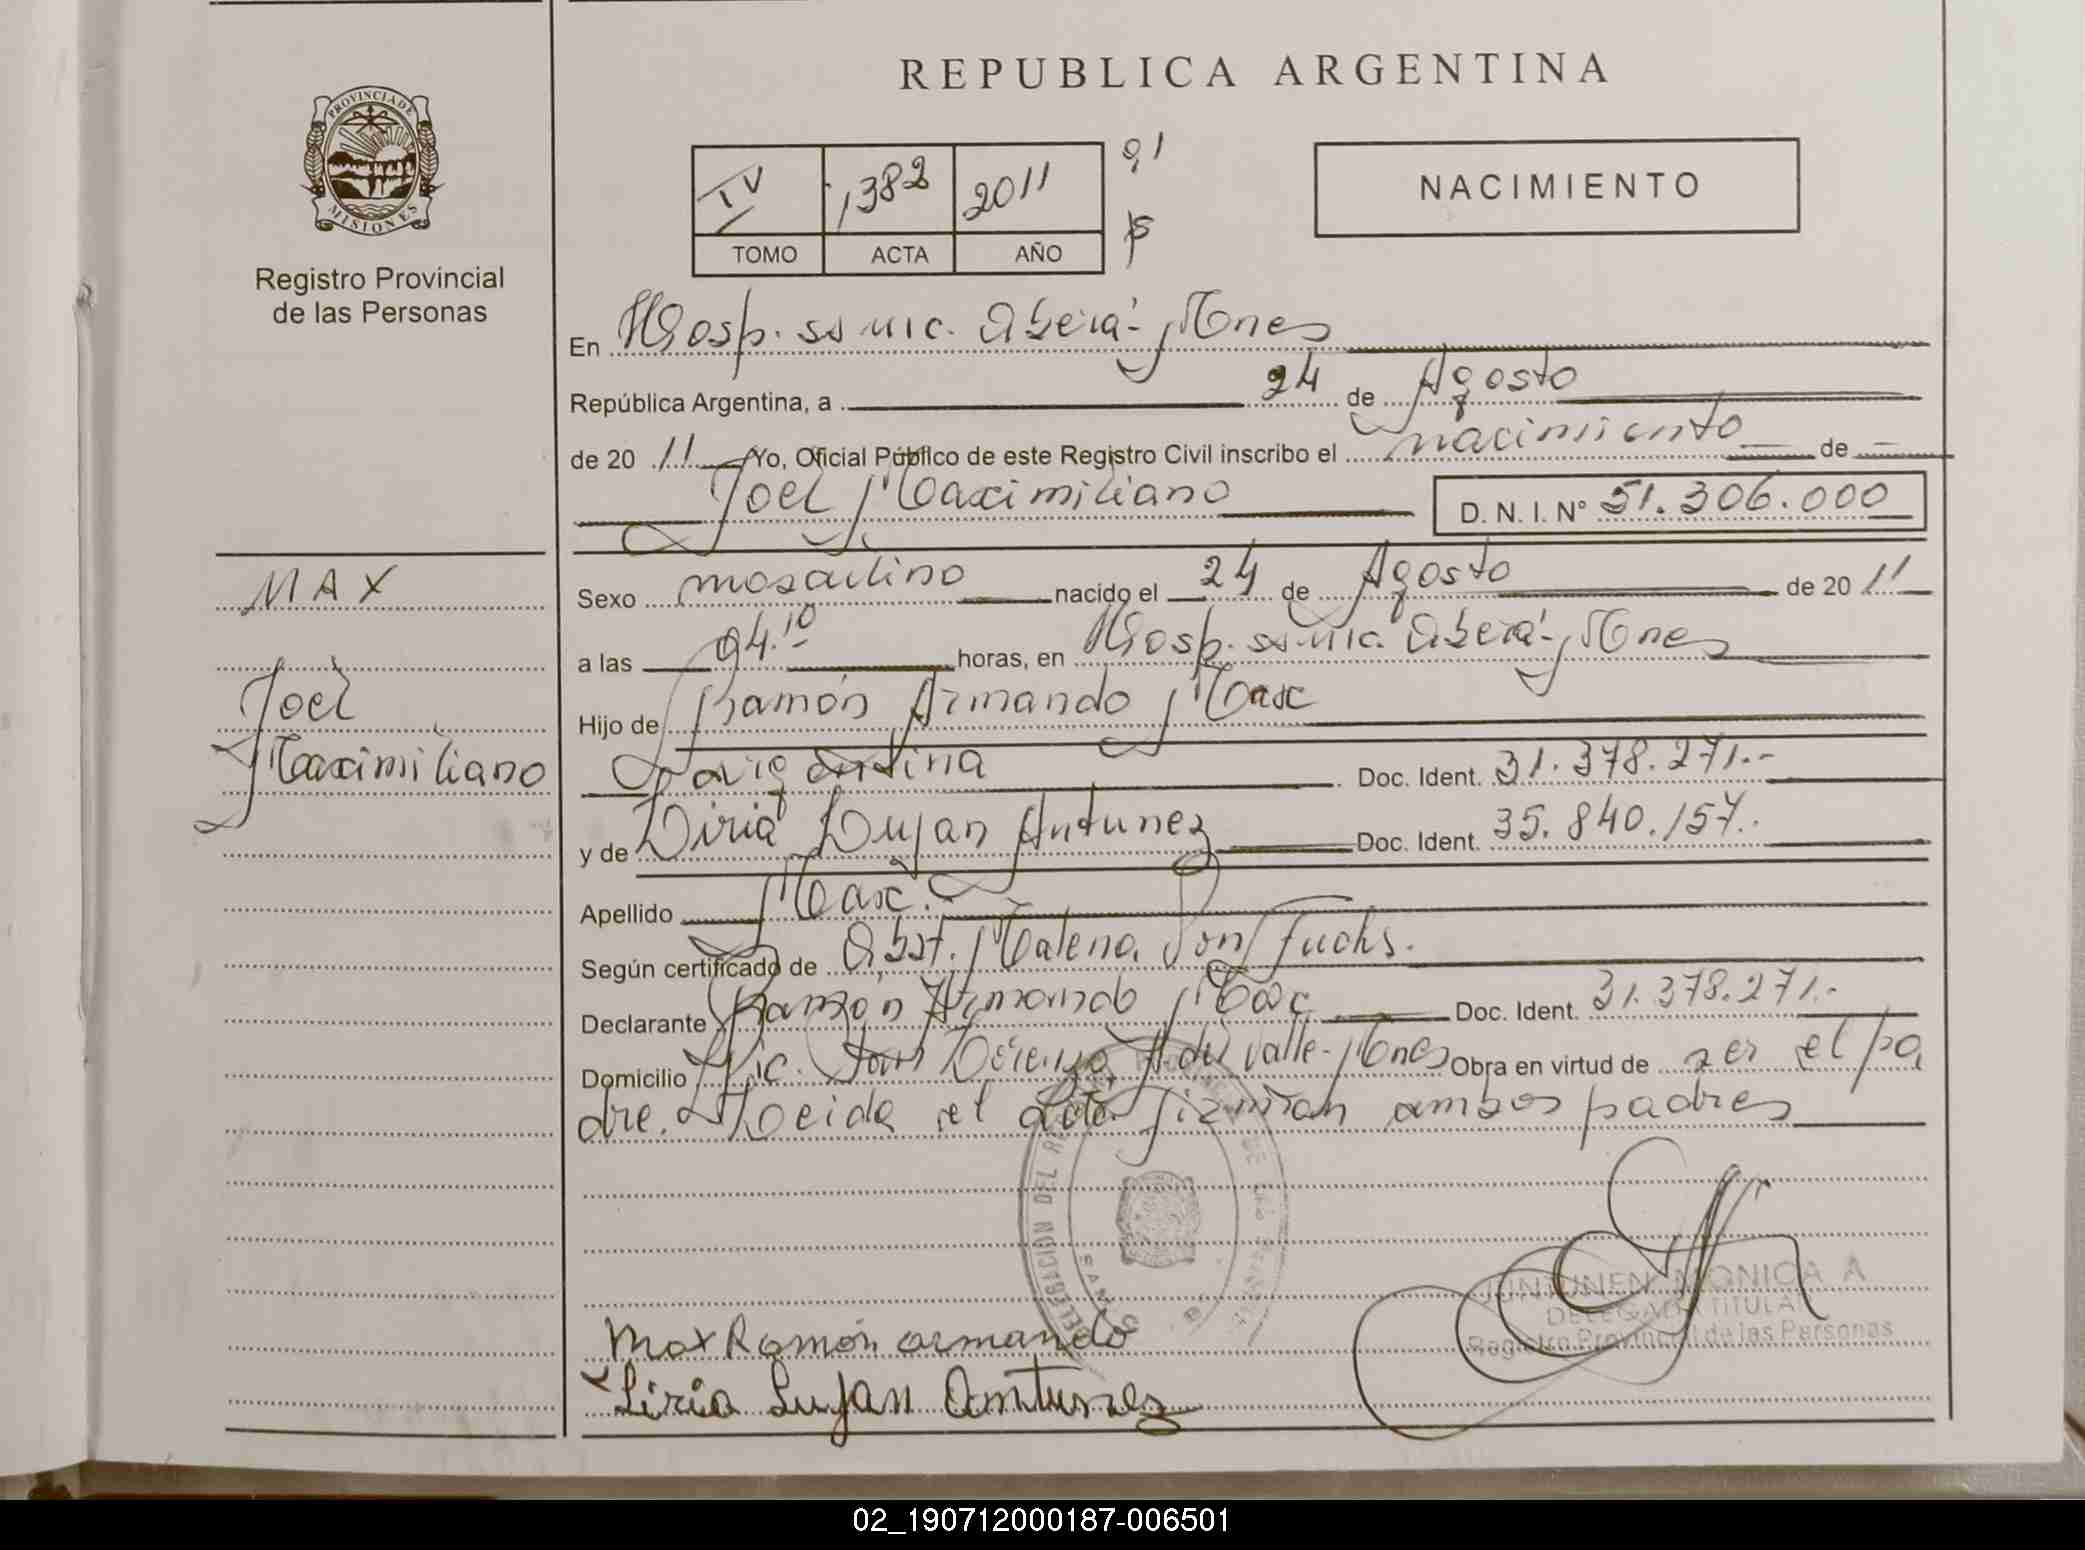 REPUBLICA ARGENTINA
PROVINCIA DE
MISIONES
Registro Provincial
de las Personas
IV 1382 2011
TOMO ACTA AÑO
NACIMIENTO
En Hosp. ss mic. Oberá - Mnes
República Argentina, a 24 de Agosto
de 20 11 Yo, Oficial Público de este Registro Civil inscribo el nacimiento de
Joel Maximiliano D. N. I. N° 51.306.000
MAX
Joel
Maximiliano
Sexo masculino nacido el 24 de Agosto de 20 11
a las 04.10 horas, en Hosp. ss mic. Oberá - Mnes
Hijo de Ramón Armando Max
argentina Doc. Ident. 31.378.271.-
y de Liria Lujan Antunez Doc. Ident. 35.840.157.-
Apellido Max.-
Según certificado de Obst. Malena Von Fuchs.
Declarante Ramón Armando Max Doc. Ident. 31.378.271.-
Domicilio Pic. San Lorenzo, A. del Valle - Mnes Obra en virtud de ser el pa
dre. Leida el acta firman ambos padres
DELEGACION DEL
JUNTUNEN MONICA A
DELEGADA TITULAR
Registro Provincial de las Personas
Max Ramón armando
Liria Lujan Antunez
02_190712000187-006501